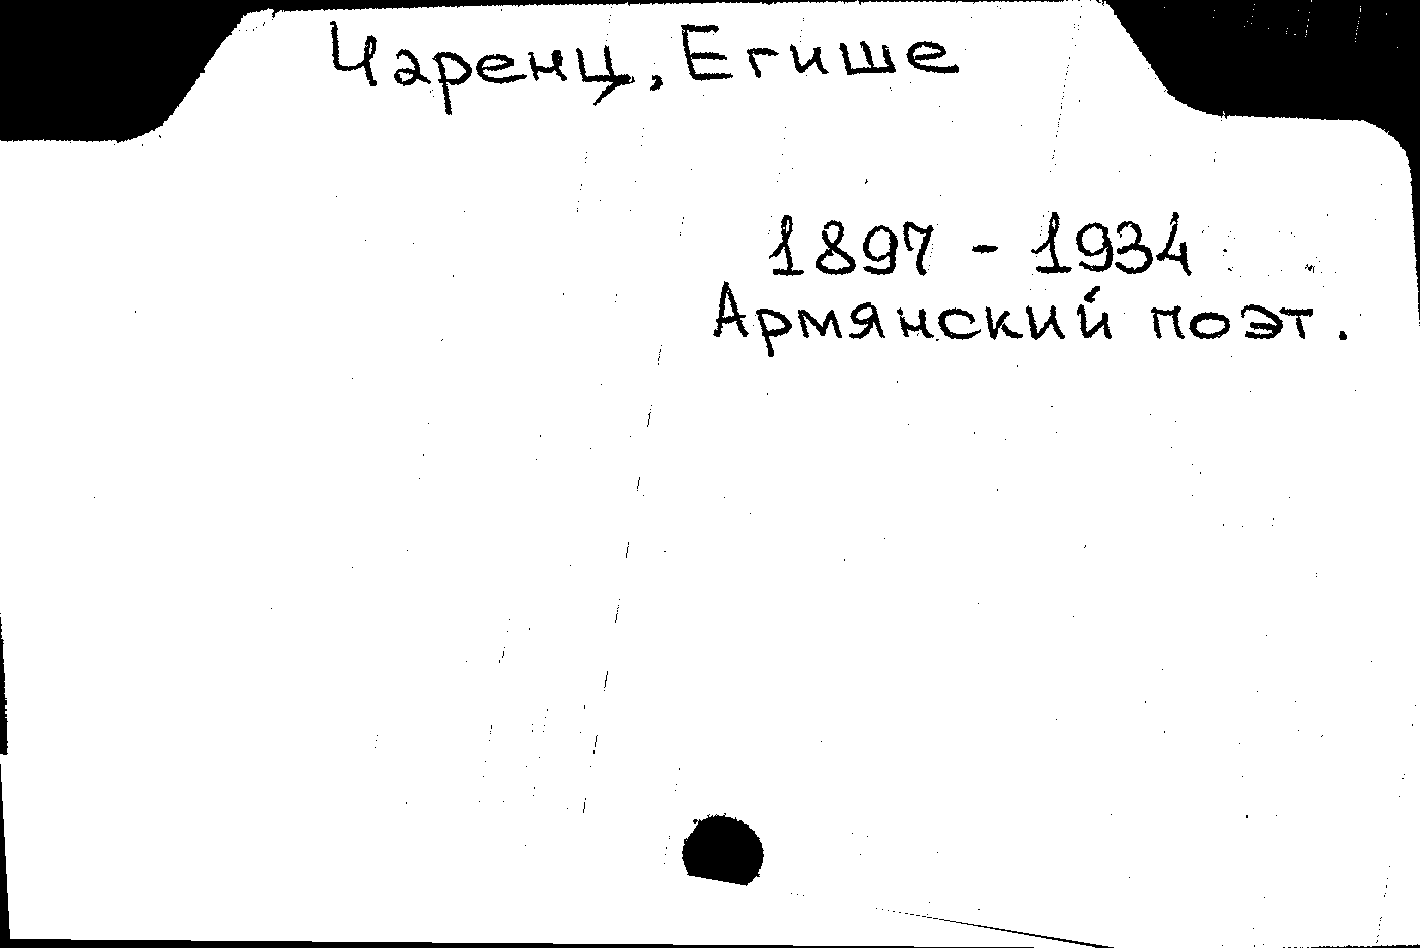 Чаренц, Егише
1897 - 1934
Армянский поэт.